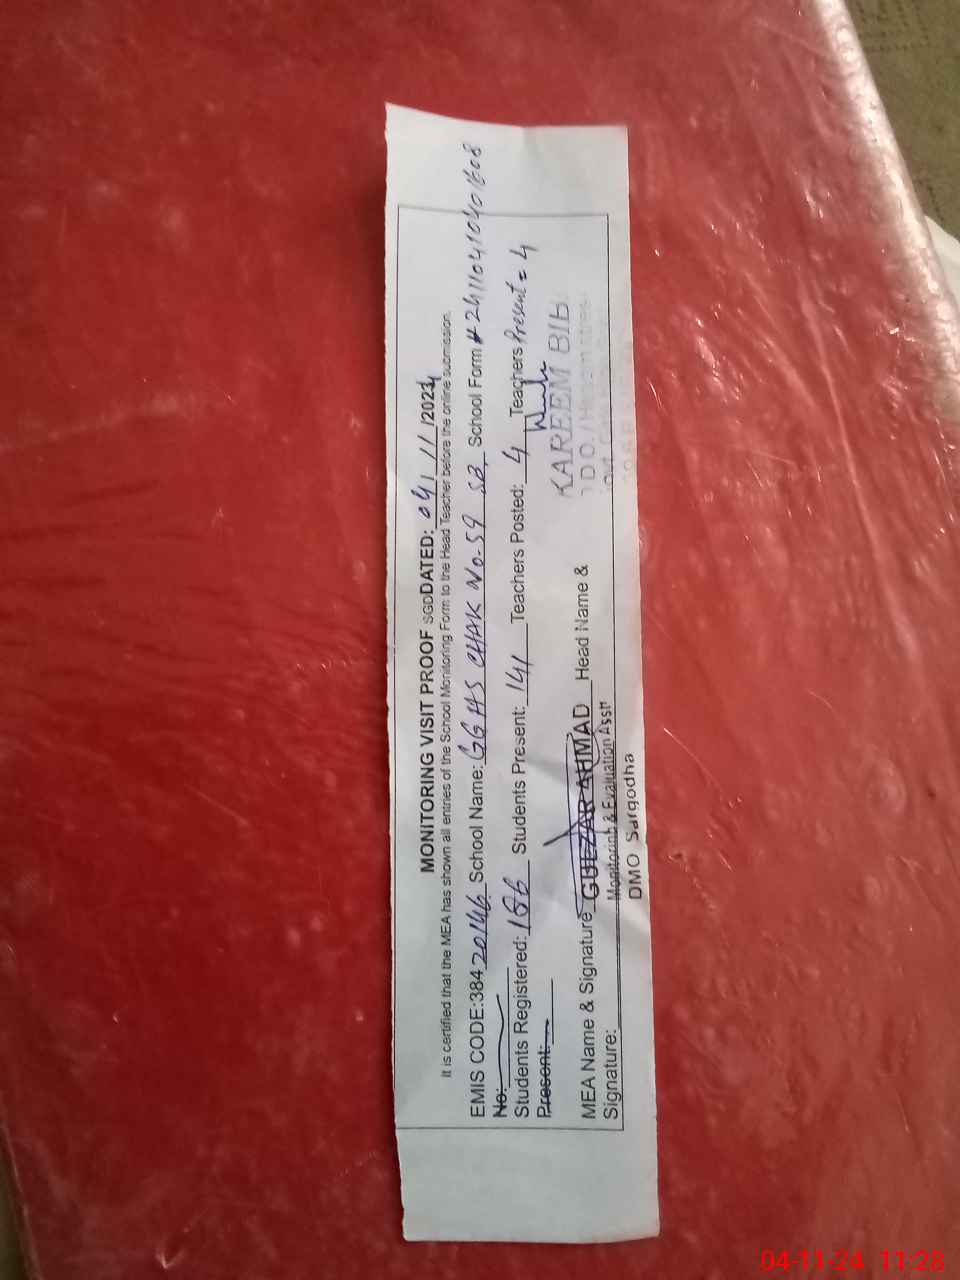 MONITORING VISIT PROOF SGD DATED: 04/11/2024
It is certified that the MEA has shown all entries of the School Monitoring Form to the Head Teacher before the online submission.
EMIS CODE:38420146 School Name: GGHS CHAK No-59 SB, School Form # 24110410401608
No:
Students Registered: 186 Students Present: 141 Teachers Posted: 4 Teachers Present = 4
Present:
KAREEM BIB
MEA Name & Signature GULZAR AHMAD Head Name &
Signature: Monitoring & Evaluation Asstt
DMO Sargodha
04-11-24 11:28